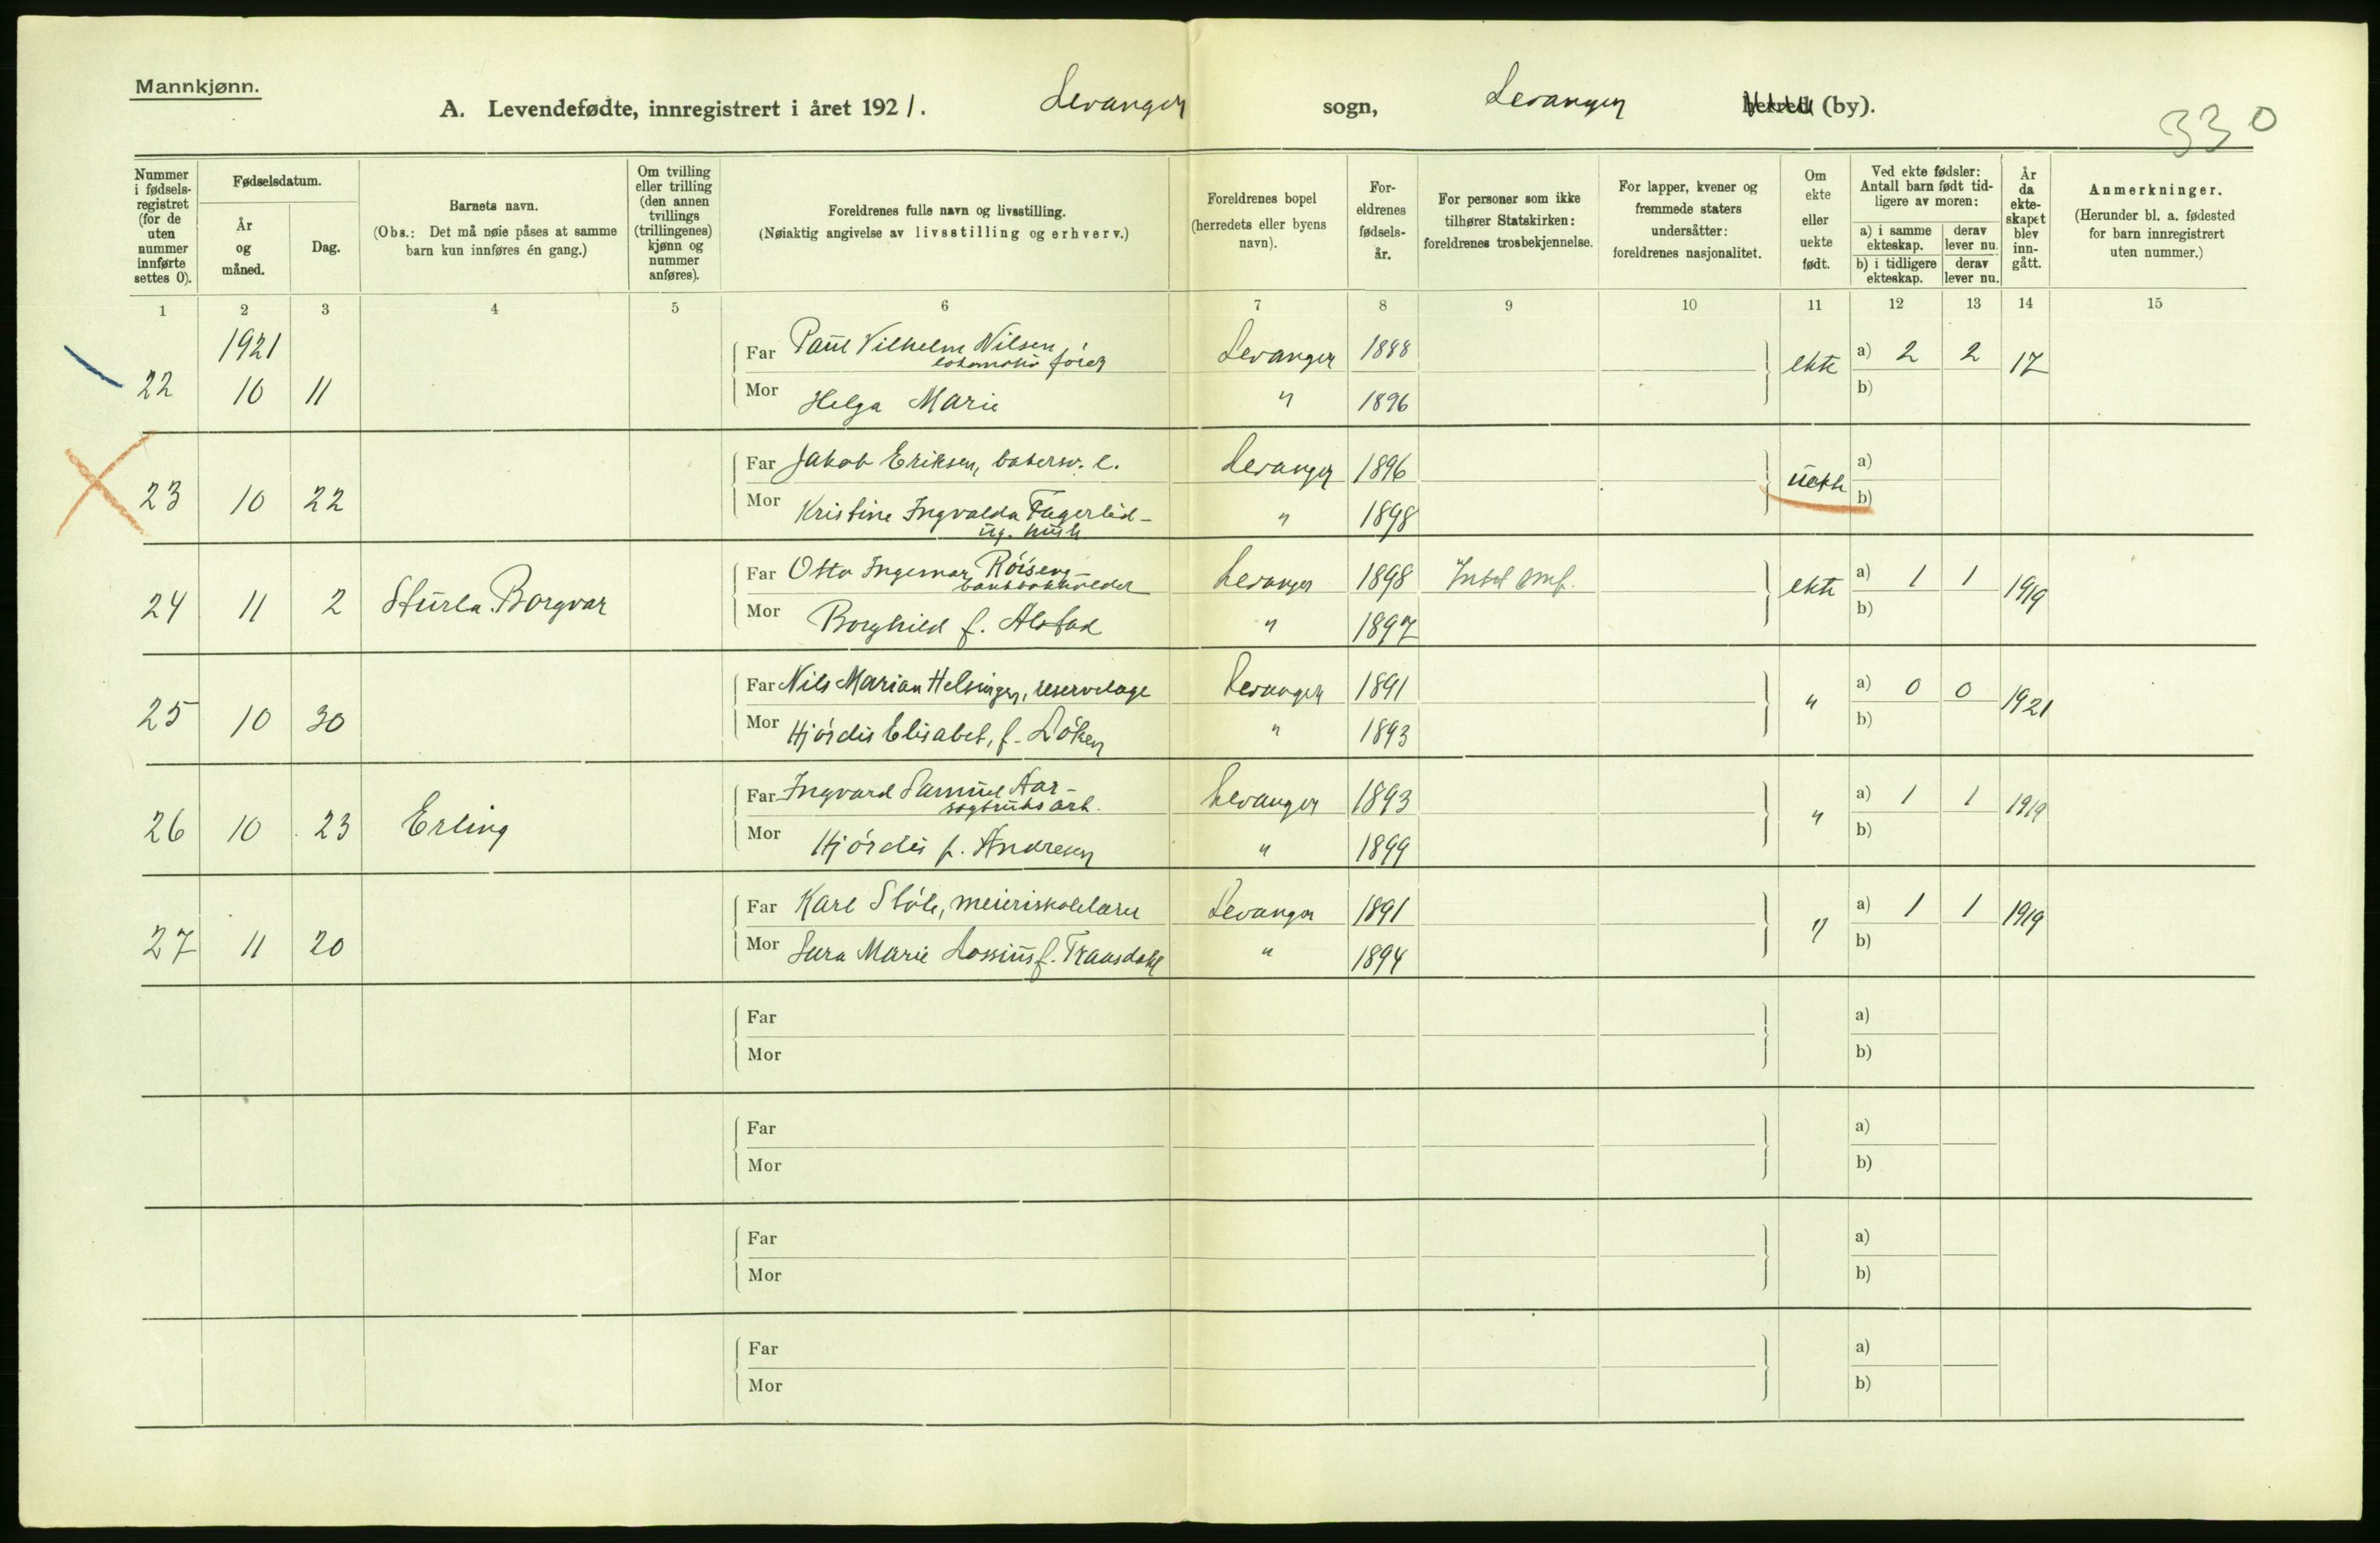 Mannkjønn.
A. Levendefødte, innregistrert i året 1921. Levanger sogn, Levanger herred (by).
330
Nummer i fødsels-registret (for de uten nummer innførte settes 0).
Fødselsdatum.
År og måned.
Dag.
Barnets navn.
(Obs.: Det må nøie påses at samme barn kun innføres én gang.)
Om tvilling eller trilling (den annen tvillings (trillingenes) kjønn og nummer anføres).
Foreldrenes fulle navn og livsstilling.
(Nøiaktig angivelse av livsstilling og erhverv.)
Foreldrenes bopel (herredets eller byens navn).
For-eldrenes fødsels-år.
For personer som ikke tilhører Statskirken: foreldrenes trosbekjennelse.
For lapper, kvener og fremmede staters undersåtter: foreldrenes nasjonalitet.
Om ekte eller uekte født.
Ved ekte fødsler: Antall barn født tid-ligere av moren:
a) i samme ekteskap. derav lever nu.
b) i tidligere ekteskap. derav lever nu.
År da ekte-skapet blev inn-gått.
Anmerkninger.
(Herunder bl. a. fødested for barn innregistrert uten nummer.)
1 2 3 4 5 6 7 8 9 10 11 12 13 14 15
1921
Far Paul Vilhelm Nilsen, lokomotivfører Levanger 1888 ekte a) 2 2 17
22 10 11
Mor Helga Marie " 1896 b)
Far Jakob Eriksen, bakersv. e. Levanger 1896 uekte a)
23 10 22
Mor Kristine Ingvalda Fagerlid - ug. hush " 1898 b)
Far Otto Ingemar Röiseng - bankbokholder Levanger 1898 ekte a) 1 1 1919
24 11 2 Sturla Borgvar
Mor Borghild f. Alstad " 1897 b)
Far Nils Marian Helsinger, reservelæge Levanger 1891 " a) 0 0 1921
25 10 30
Mor Hjördis Elisabet, f. Löken " 1893 b)
Far Ingvard Samuel Aar - sagbruksarb. Levanger 1893 " a) 1 1 1919
26 10 23 Erling
Mor Hjördis f. Andresen " 1899 b)
Far Karl Stöle, meieriskolelærer Levanger 1891 " a) 1 1 1919
27 11 20
Mor Sara Marie Lossius f. Traasdahl " 1894 b)
Far a)
Mor b)
Far a)
Mor b)
Far a)
Mor b)
Far a)
Mor b)